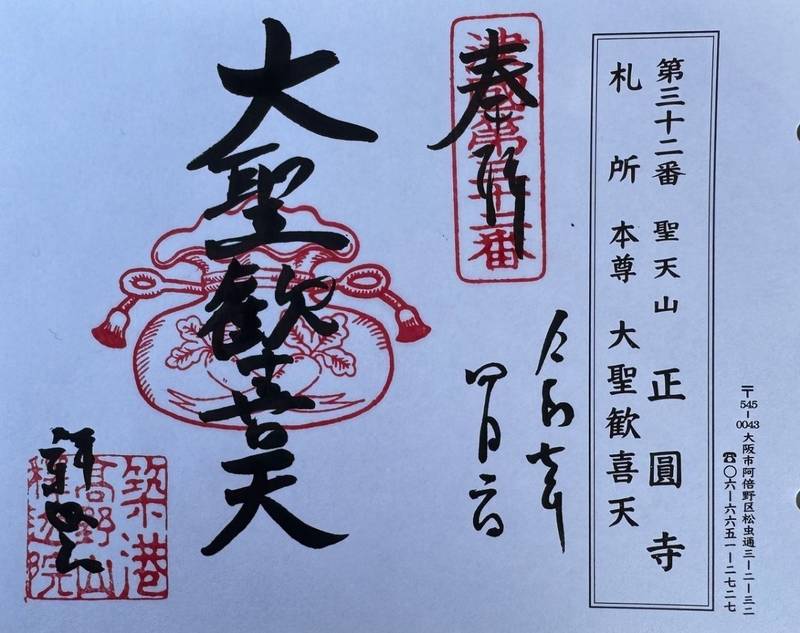 〒545-0043 大阪市阿倍野区松虫通三-二-三二
☎〇六-六六五一-二七二七
第三十二番 聖天山 正圓寺
札所 本尊 大聖歓喜天
奉拝
令和七年
四月
大聖歓喜天
築港
高野山